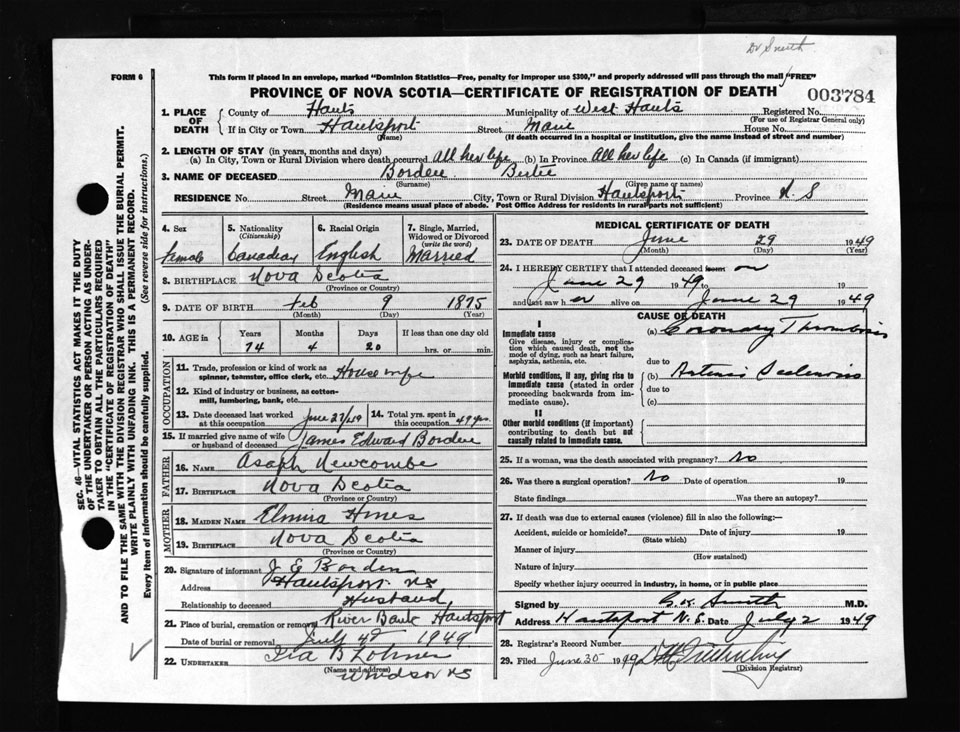 Dr Smith
FORM 6
This form if placed in an envelope, marked "Dominion Statistics—Free, penalty for improper use $300," and properly addressed will pass through the mail "FREE"
PROVINCE OF NOVA SCOTIA—CERTIFICATE OF REGISTRATION OF DEATH
003784
1. PLACE OF DEATH
County of Hants Municipality of West Hants Registered No.
(For use of Registrar General only)
If in City or Town Hantsport Street Main House No.
(Name) (If death occurred in a hospital or institution, give the name instead of street and number)
2. LENGTH OF STAY (in years, months and days)
(a) In City, Town or Rural Division where death occurred All her life (b) In Province All her life (c) In Canada (if immigrant)
3. NAME OF DECEASED Borden Bertie
(Surname) (Given name or names)
RESIDENCE No. Street Main City, Town or Rural Division Hantsport Province N.S
(Residence means usual place of abode. Post Office Address for residents in rural parts not sufficient)
4. Sex
Female
5. Nationality (Citizenship)
Canadian
6. Racial Origin
English
7. Single, Married, Widowed or Divorced (write the word)
Married
8. BIRTHPLACE Nova Scotia
(Province or Country)
9. DATE OF BIRTH Feb 9 1875
(Month) (Day) (Year)
10. AGE in
Years Months Days If less than one day old
74 4 20 hrs. or min.
OCCUPATION
11. Trade, profession or kind of work as spinner, teamster, office clerk, etc. House wife
12. Kind of industry or business, as cotton-mill, lumbering, bank, etc.
13. Date deceased last worked at this occupation June 27/49
14. Total yrs. spent in this occupation 49 yrs.
15. If married give name of wife or husband of deceased James Edward Borden
FATHER
16. NAME Asaph Newcombe
17. BIRTHPLACE Nova Scotia
(Province or Country)
MOTHER
18. MAIDEN NAME Elmira
19. BIRTHPLACE Nova Scotia
(Province or Country)
20. Signature of informant J E Borden
Address Hantsport NS
Relationship to deceased Husband
21. Place of burial, cremation or removal River Bank Hantsport
Date of burial or removal July 4th 1949
22. UNDERTAKER Ira B
(Name and address)
Windsor NS
MEDICAL CERTIFICATE OF DEATH
23. DATE OF DEATH June 29 1949
(Month) (Day) (Year)
24. I HEREBY CERTIFY that I attended deceased from: on
June 29 1949 to
and last saw her alive on June 29 1949
CAUSE OF DEATH
I
Immediate cause
Give disease, injury or complication which caused death, not the mode of dying, such as heart failure, asphyxia, asthenia, etc.
(a) Coronary Thrombosis
due to
Morbid conditions, if any, giving rise to immediate cause (stated in order proceeding backwards from immediate cause).
(b) Arterio Sclerosis
due to
(c)
II
Other morbid conditions (if important) contributing to death but not causally related to immediate cause.
25. If a woman, was the death associated with pregnancy? No
26. Was there a surgical operation? No Date of operation 19
State findings Was there an autopsy?
27. If death was due to external causes (violence) fill in also the following:—
Accident, suicide or homicide? Date of injury 19
(State which)
Manner of injury
(How sustained)
Nature of injury
Specify whether injury occurred in industry, in home, or in public place
Signed by Smith M.D.
Address Hantsport N.S. Date July 2 1949
28. Registrar's Record Number
29. Filed June 30 1949
(Division Registrar)
SEC. 46—VITAL STATISTICS ACT MAKES IT THE DUTY
OF THE UNDERTAKER OR PERSON ACTING AS UNDER-
TAKER TO OBTAIN ALL THE PARTICULARS REQUIRED
IN THE "CERTIFICATE OF REGISTRATION OF DEATH"
AND TO FILE THE SAME WITH THE DIVISION REGISTRAR WHO SHALL ISSUE THE BURIAL PERMIT.
WRITE PLAINLY WITH UNFADING INK. THIS IS A PERMANENT RECORD.
Every item of information should be carefully supplied. (See reverse side for instructions.)